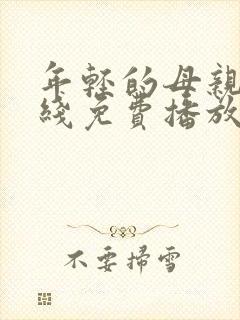 年轻的母親
綫免費播放
不要掃雪